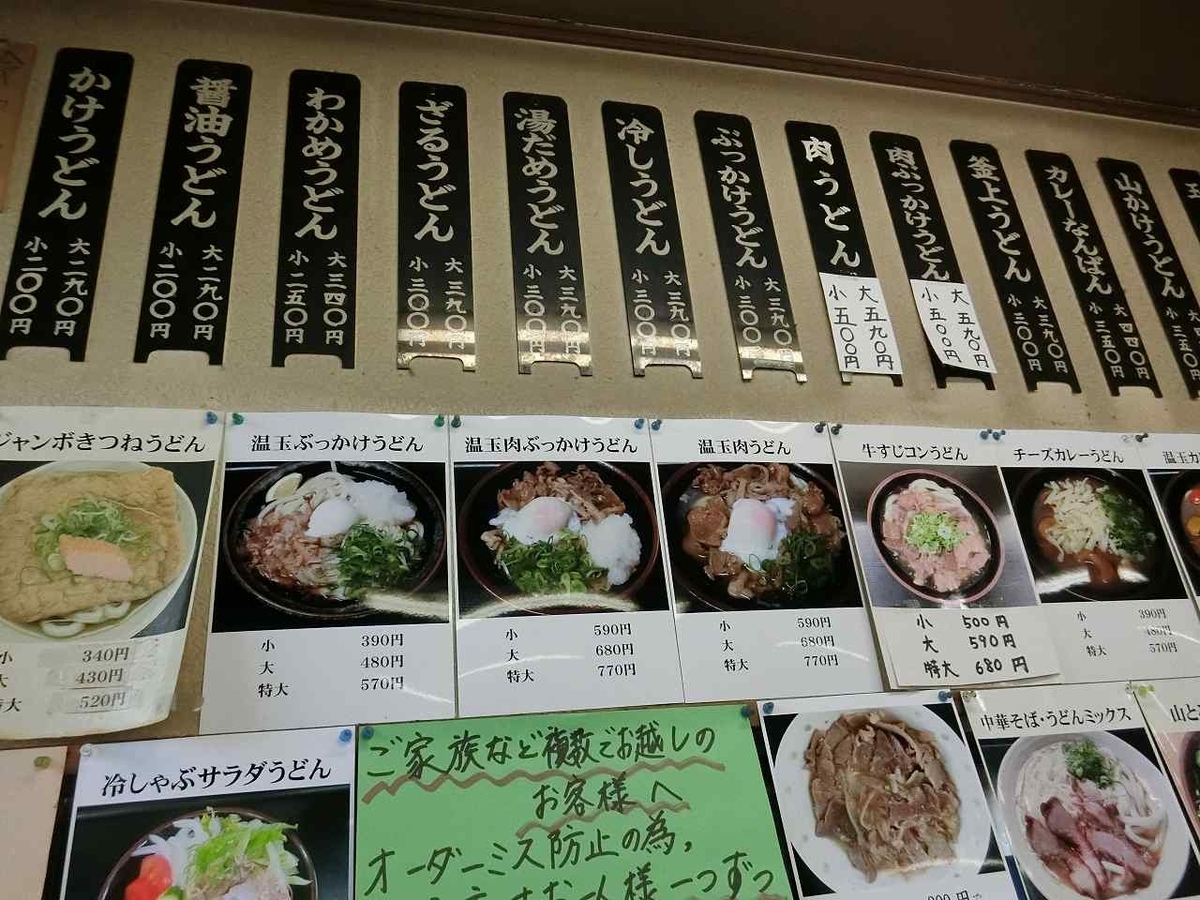 かけうどん
大二九〇円
小二〇〇円
醤油うどん
大二九〇円
小二〇〇円
わかめうどん
大三四〇円
小二五〇円
ざるうどん
大三九〇円
小三〇〇円
湯だめうどん
大三九〇円
小三〇〇円
冷しうどん
大三九〇円
小三〇〇円
ぶっかけうどん
大三九〇円
小三〇〇円
肉うどん
大五九〇円
小五〇〇円
肉ぶっかけうどん
大五九〇円
小五〇〇円
釜上うどん
大三九〇円
小三〇〇円
カレーなんばん
大四四〇円
小三五〇円
山かけうどん
小三五〇円
ジャンボきつねうどん
小 340円
大 430円
特大 520円
温玉ぶっかけうどん
小 390円
大 480円
特大 570円
温玉肉ぶっかけうどん
小 590円
大 680円
特大 770円
温玉肉うどん
小 590円
大 680円
特大 770円
牛すじコンうどん
小 500円
大 590円
特大 680円
チーズカレーうどん
小 390円
大 480円
特大 570円
温玉カ
冷しゃぶサラダうどん
ご家族など複数でお越しの
お客様へ
オーダーミス防止の為、
様一つずつ
中華そば・うどんミックス
山と